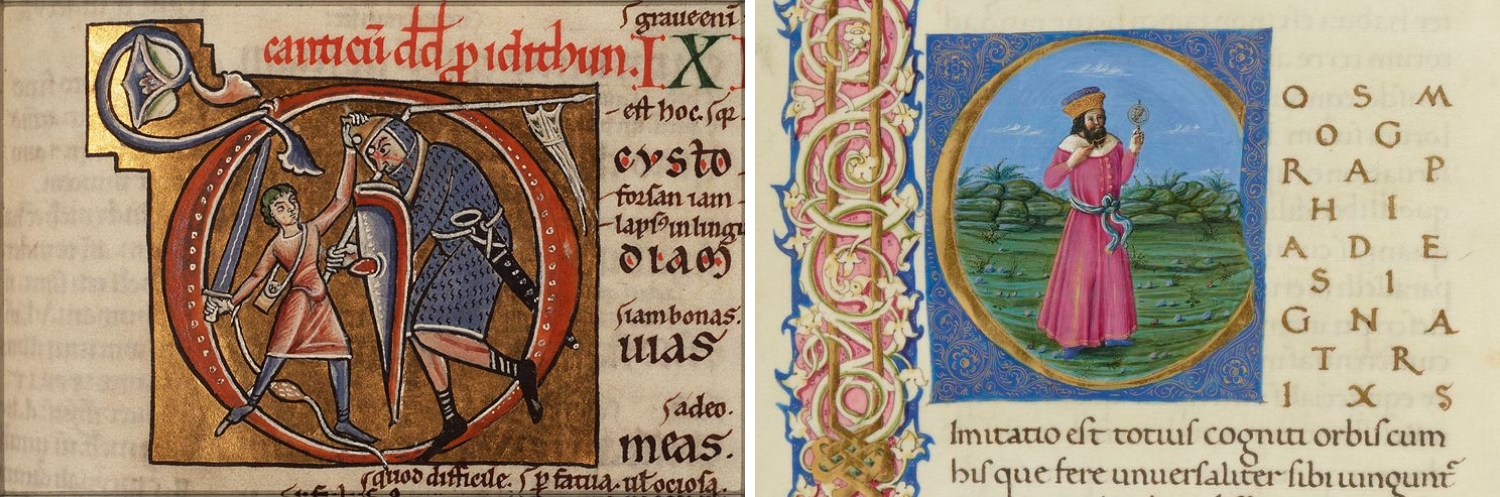 graueeni
canticū dd ꝑ idithun. IX
est hoc.
cvsto
forsan iam
lapsꝰ in lingu
diam
bonas.
uias
adeo.
meas.
quod difficile. fatua. ociosa.
O S M
O G
R A P
H I
A D E
S I
G N A
T R
I X S
Imitatio est totius cogniti orbis cum
his que fere unuersaliter sibi iungunt̄